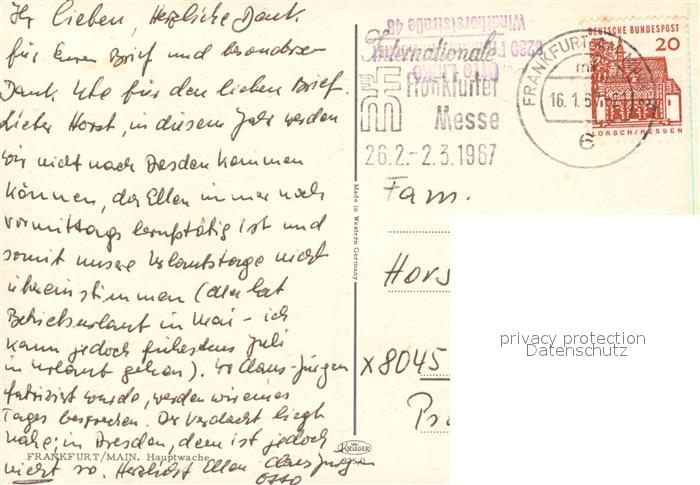 Ihr Lieben, Herzliche Dank
für Euren Brief und besonderen
Dank Ute für den lieben Brief.
Lieber Horst, in diesem Jahr werden
wir nicht nach Dresden kommen
können, da Ellen immer noch
vormittags berufstätig ist und
somit unsere Urlaubstage nicht
übereinstimmen (Ellen hat
Betriebsurlaub im Mai - ich
kann jedoch frühestens Juli
in Urlaub gehen). Wo Claus-Jürgen
wurde, werden wir eines
Tages besprechen. Der Verdacht liegt
nahe, in Dresden, dem ist jedoch
nicht so. Herzlichst Ellen Claus Jürgen
Otto
FRANKFURT/MAIN. Hauptwache
KRÜGER
925/1
Made in Western Germany
6230 F
Otto
Windthorststraße 48
Internationale
Frankfurter
Messe
26.2.-2.3.1967
FRANKFURT
16.1.67
6
DEUTSCHE BUNDESPOST
20
LORSCH/HESSEN
Fam.
Hors
X 8045
privacy protection
Datenschutz